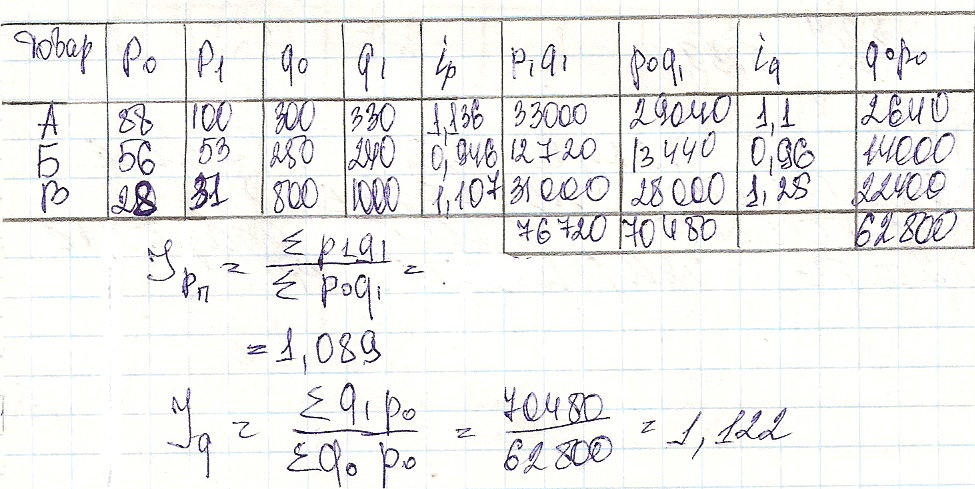 товар p₀ p₁ q₀ q₁ iₚ p₁q₁ p₀q₁ i_q q₀p₀
А 88 100 300 330 1,136 33000 29040 1,1 2640
Б 56 53 250 240 0,946 12720 13440 0,96 14000
В 28 31 800 1000 1,107 31000 28000 1,25 22400
76720 70480 62800
Jₚₙ = Σ p₁q₁ / Σ p₀q₁ =
= 1,089
J_q = Σ q₁p₀ / Σ q₀ p₀ = 70480 / 62800 = 1,122